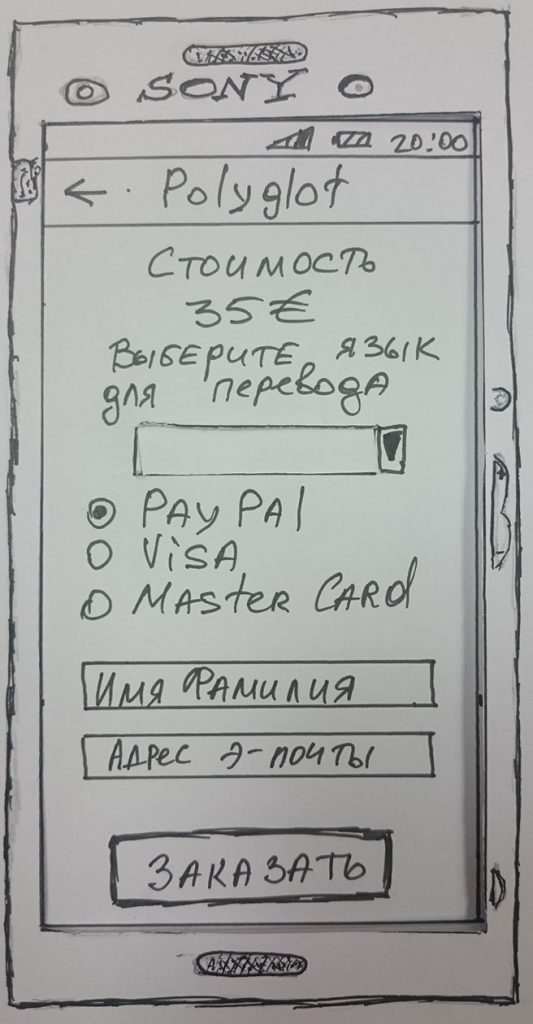 SONY
20:00
← Polyglot
Стоимость
35€
Выберите язык
для перевода
PayPal
Visa
Master Card
Имя Фамилия
Адрес э-почты
Заказать